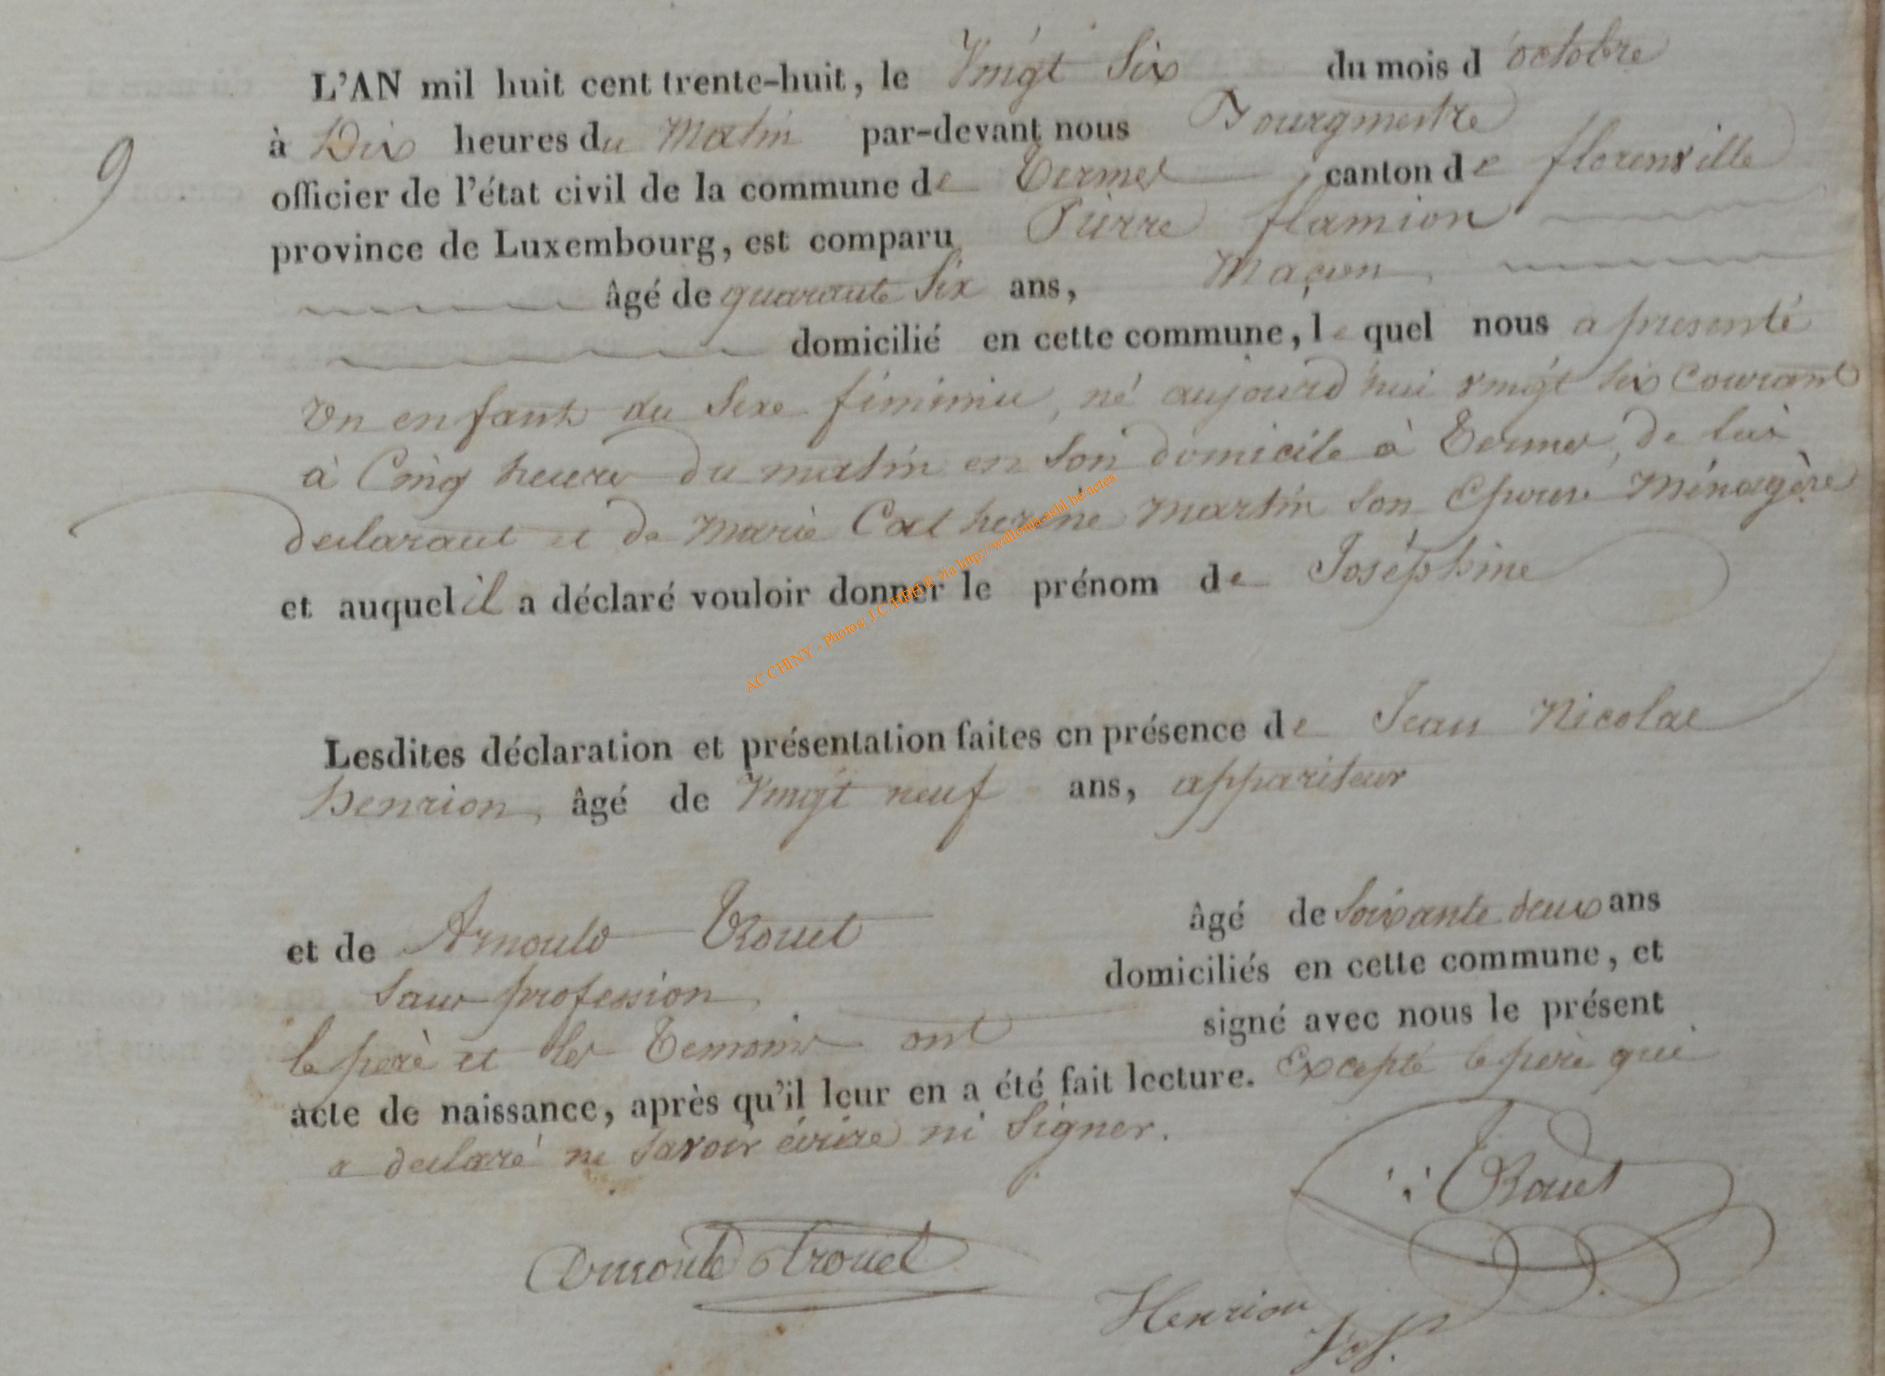 L'AN mil huit cent trente-huit, le Vingt Six du mois d'octobre
à Dix heures du Matin par-devant nous Bourgmestre
9
officier de l'état civil de la commune de Termes canton de florenville
province de Luxembourg, est comparu Pierre flamion
âgé de quarante Six ans, Maçon,
domicilié en cette commune, lequel nous a presenté
Un enfant du Sexe féminin, né aujourd'hui vingt six Courant
à Cinq heures du matin en Son domicile à Termes, de lui
declarant et de Marie Catherine Martin Son Epouse Ménagère
et auquel il a déclaré vouloir donner le prénom de Joséphine
ACCHINY - Photos: J.C. via http://wallonia.asbl.be/actes
Lesdites déclaration et présentation faites en présence de Jean Nicolas
henrion, âgé de Vingt neuf ans, appariteur
et de Arnould Trouet âgé de Soixante deux ans
Sans profession, domiciliés en cette commune, et
le perè et les Temoins ont signé avec nous le présent
acte de naissance, après qu'il leur en a été fait lecture. Excepté le perè qui
a declaré ne Savoir écrire ni Signer.
Trouet
Arnould trouet
Henrion